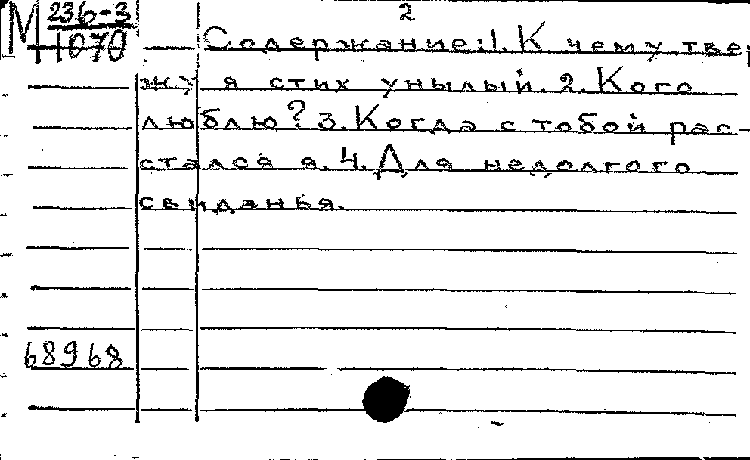 2
М 236-3
1070
Содержание: 1. К чему твер
жу я стих унылый. 2. Кого
люблю? 3. Когда с тобой рас-
стался я. 4. Для недолгого
свиданья.
68968